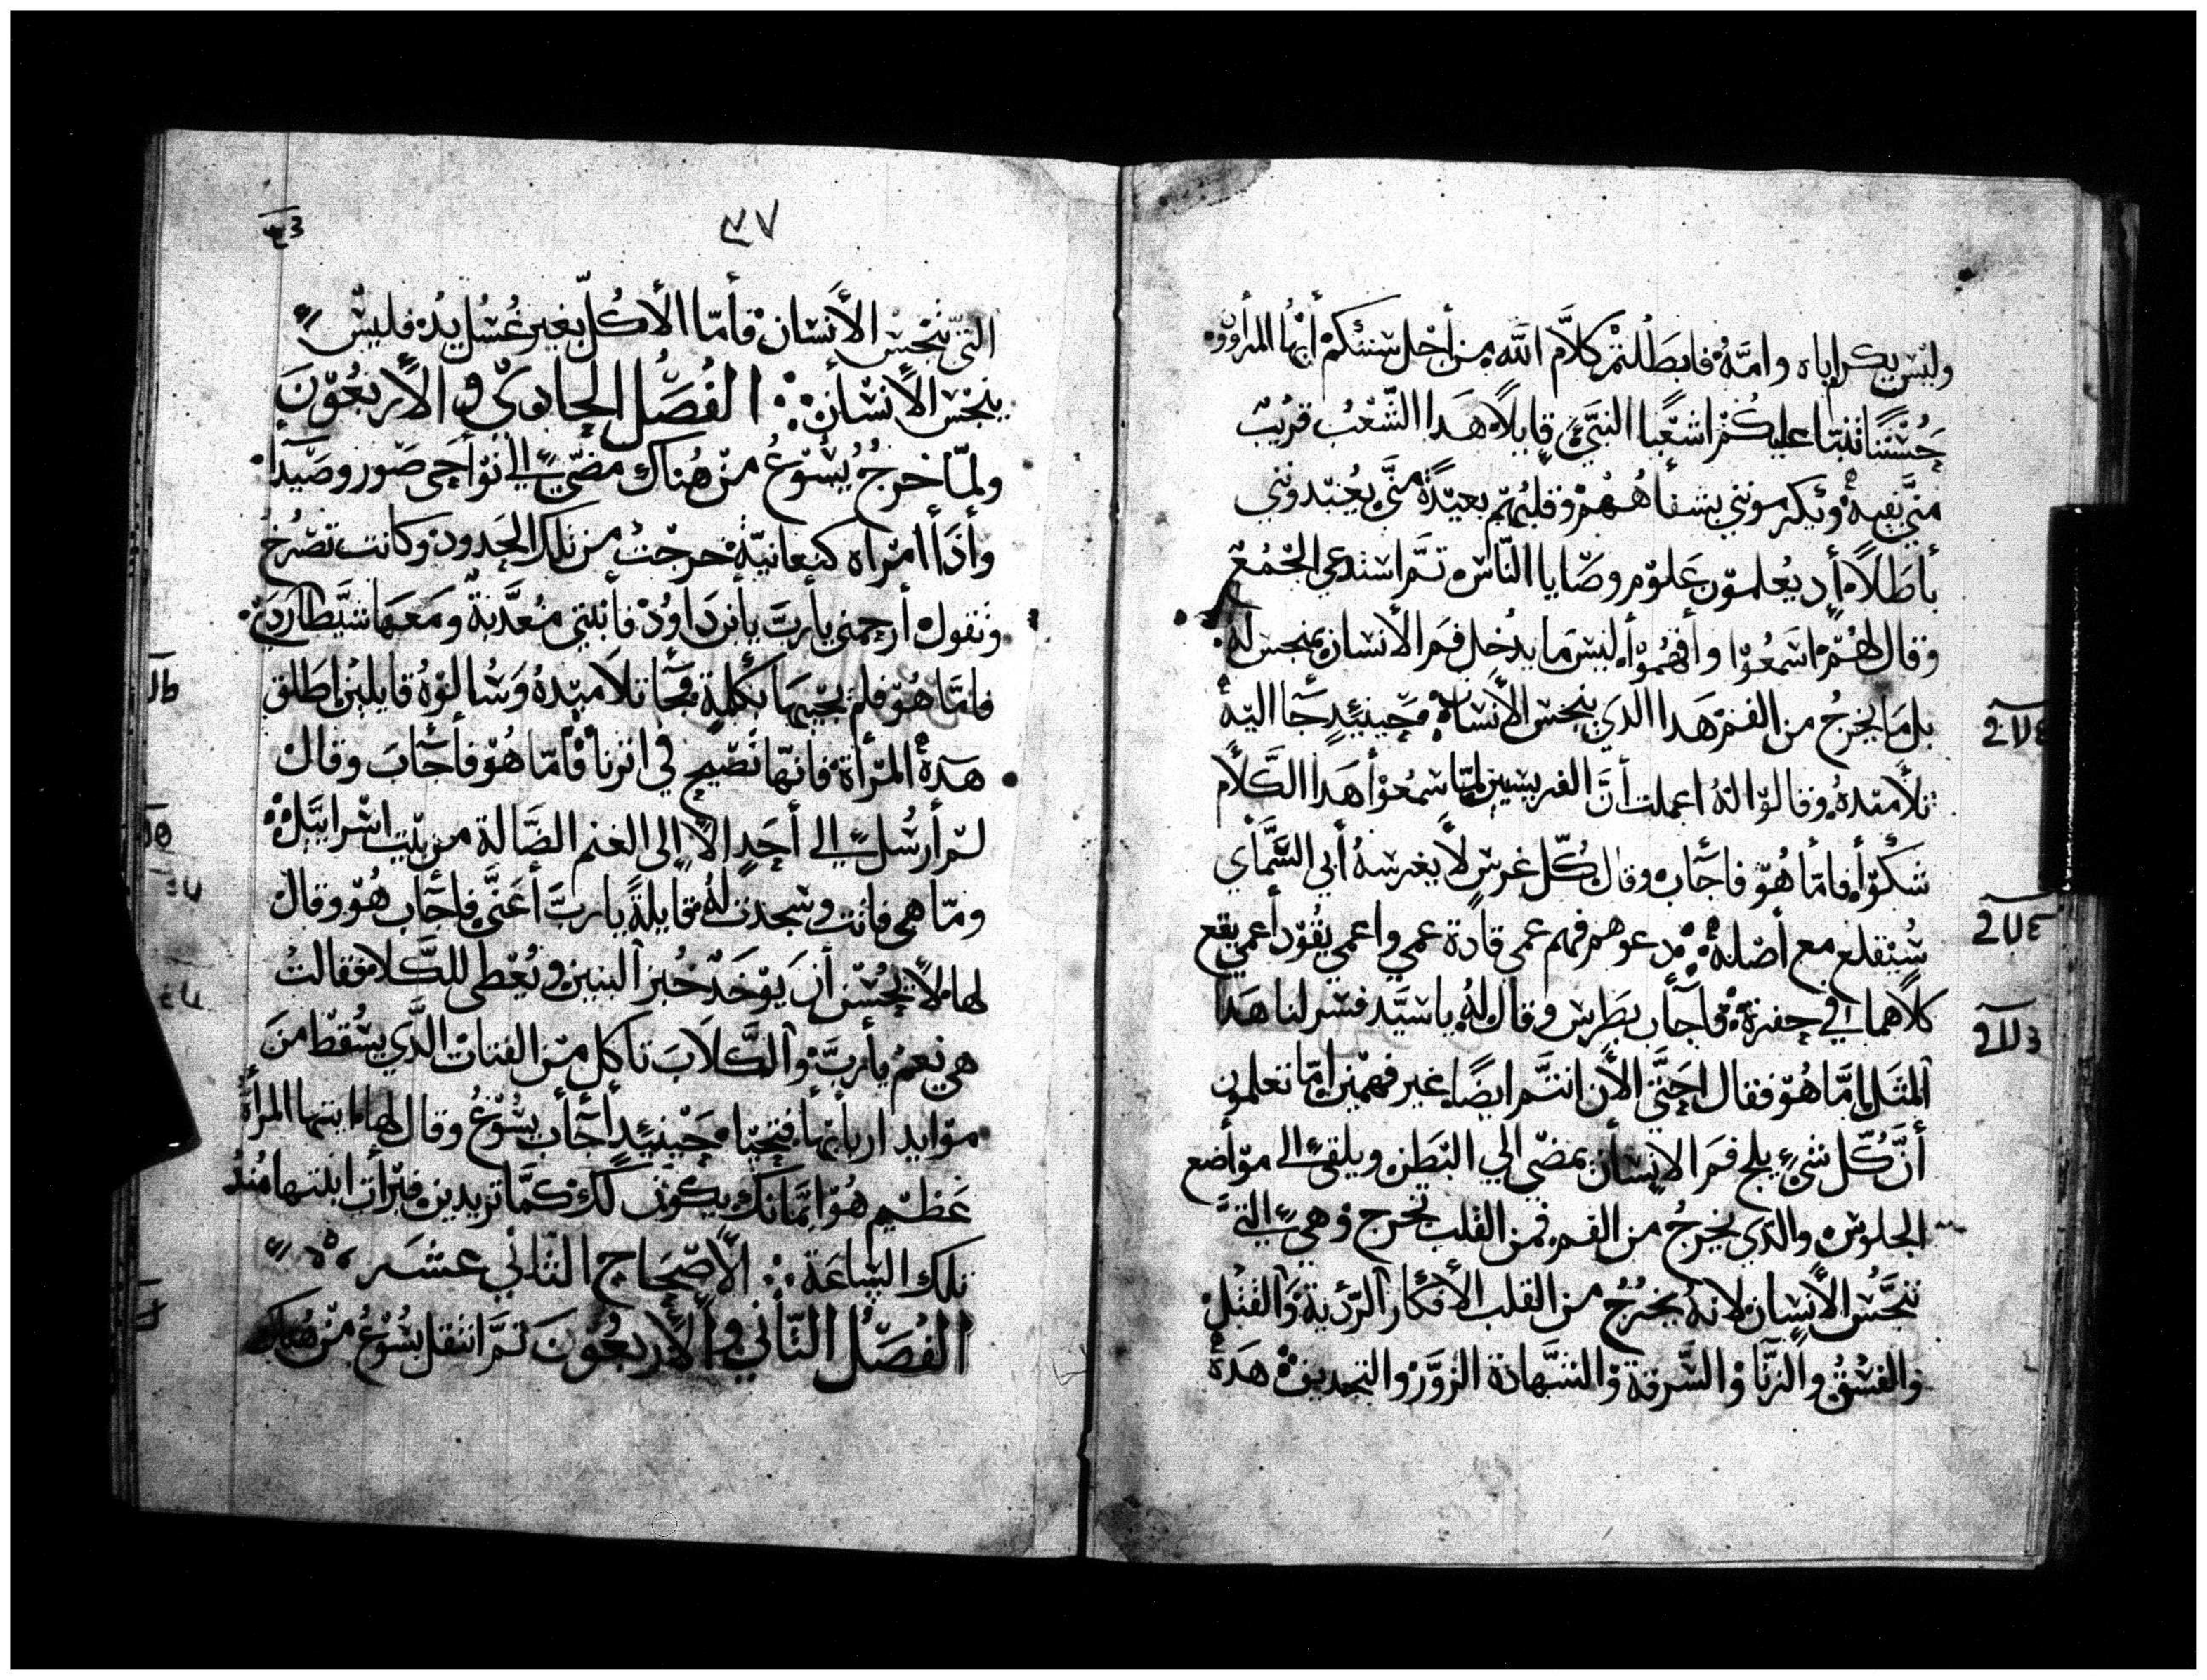 وليس يكرم اباه وامّهُ فابطلتم كلام الله من أجل سنتكم أيها المرأوون
حُسنًا تنبّا عليكم اشعيا النبيّ قايلاً هدا الشعب قريب
منّي بفيه ويكرمونني بشفاههم وقلبهم بعيدة منّي يعبدونني
باطلاً إد يعلمون علوم وصايا الناس تم استدعي الجمع
وقال لهم اسمعوا وأفهموا ليس ما يدخل فم الأنسان ينجس له
بل ما يخرج من الفم هدا الدي ينجس الأنسان حينيدٍ جا اليه
تلاميده وقالوا له اعملت أنّ الفريسيين لمّا سمعوا هدا الكلام
شكّوا فامّا هوّ فاجاب وقال كلّ غرس لا يغرسه أبي السّماي
سُيقلع مع أصله دعوهم فهم عمي قادة عمي واعمي يقود أعمي يقع
كلاهما في حفرة فاجاب بطرس وقال له ياسيّد فسر لنا هدا
المثل إمّا هوّ فقال احتّي الأن انتم ايضًا غير فهمين امّا تعلمون
أنّ كلّ شيٍ يلج فم الانسان يمضي الي البطن ويلقي الي مواضع
الجلوس والدي يخرج من الفم فمن القلب تخرج وهي التي
تنجّس الأنسان لانه يخرج من القلب الأفكار الرّدية والقتل
والفسق والزنا والسّرقة والشّهادة الزوّر والتجديف هده
٤٧
التي تنجس الأنسان فأمّا الأكل بغير غسل يد فليس
ينجس الأنسان الفصل الحادي والأربعون
ولمّا خرج يسوع من هناك مضي الي نواحي صور وصيدا
وأدا أمراه كنعانية خرجت من تلك الحدود وكانت تصرخ
وتقول أرحمني يأربّ يأبن داود فأبنتي معدّبة ومعها شيطاردي
فامّا هوّ فلم يجيبها بكلمة فجا تلاميده وسالوه قايلين اطلق
هده المرأة فانها تصيح في اترنا فأمّا هوّ فأجاب وقال
لم أرسل الي أحدٍ الاّ إلى الغنم الضّالة من بيت اسراييل
ومّا هي فاتت وسجدت له قايلة يارب أعنّي فاجاب هوّ وقال
لها لا يحسن أن يوخد خبز البنين ويعطي للكلاب فقالت
هي نعم يأربّ والكلاب تأكل من الفتات الدّي يسقط من
موايد اربابها فتحيا حينيدٍ أجاب يسوع وقال لها ايتها المرأة
عظيم هوّ ايمانك يكون لك كما تريدين فبرأت ابنتها مند
تلك الساعة الأصحاح التاني عشر
الفصل التأني والأربعون تمّ انتقل يسوع من هناك